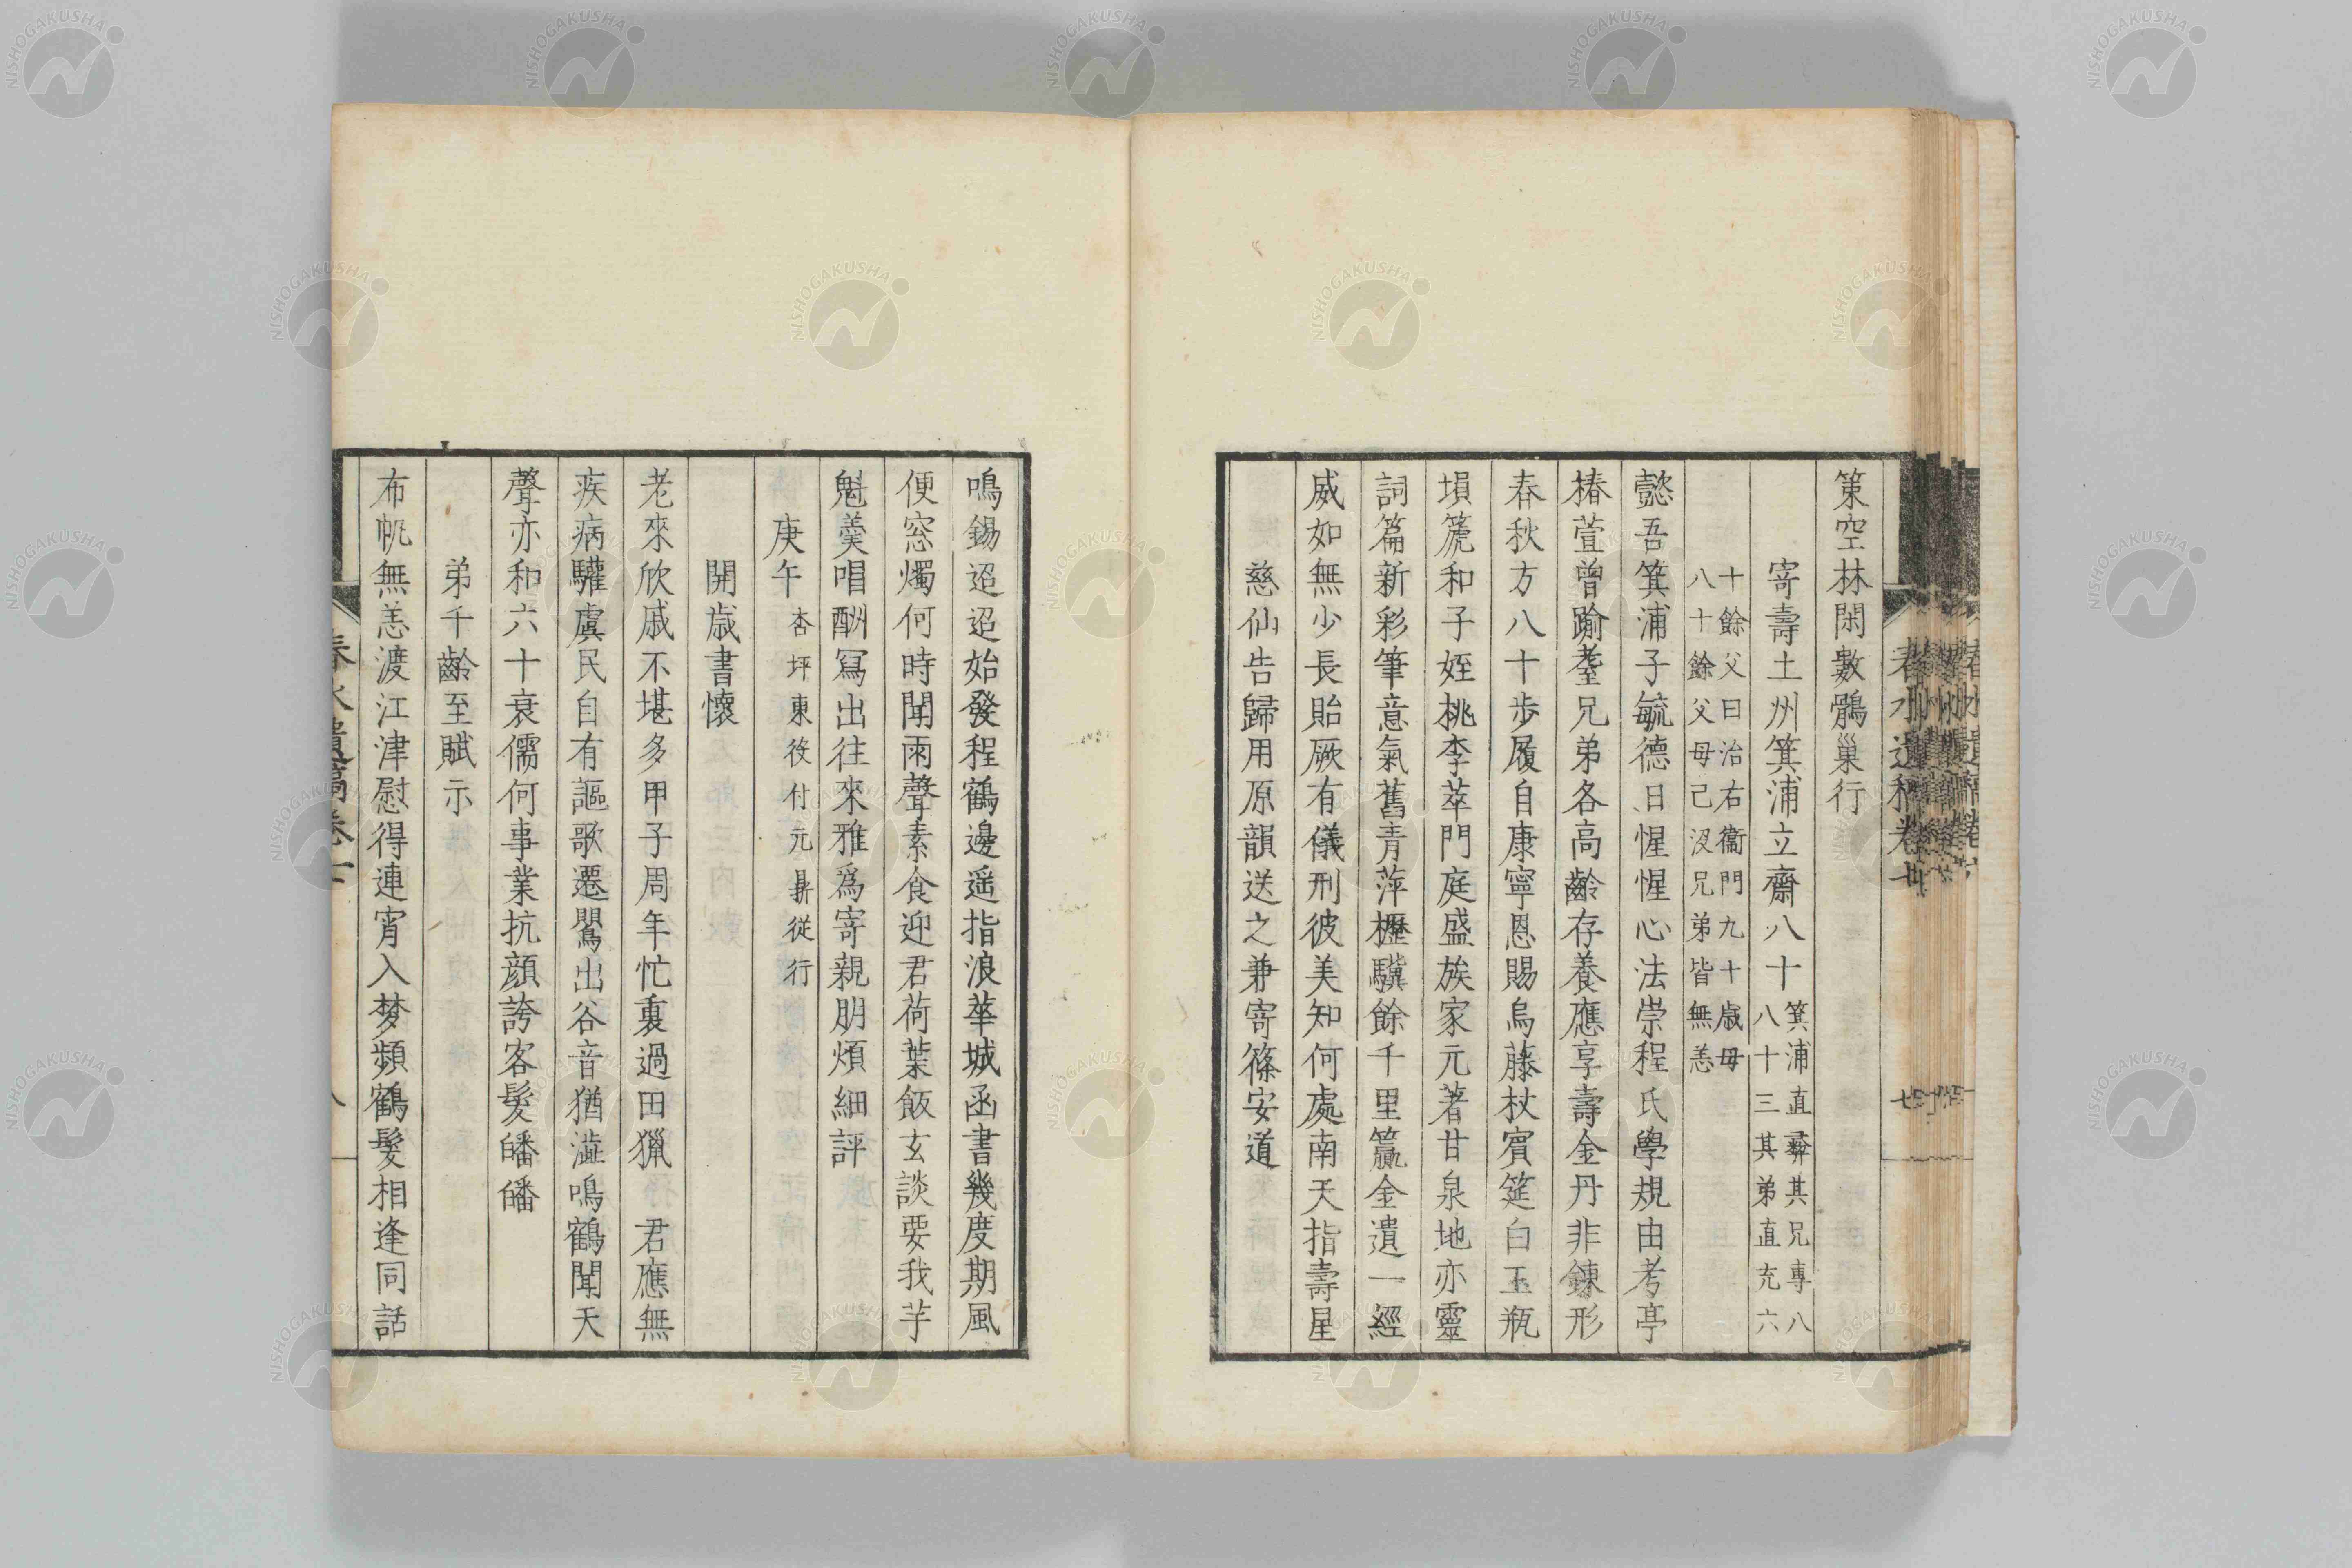 策空林閑數鶻巢行
寄壽土州箕浦立齋八十箕浦直彝其兄專八
八十三其弟直充六
十餘父曰治右衞門九十歲母
八十餘父母已沒兄弟皆無恙
懿吾箕浦子毓德日惺惺心法崇程氏學規由考亭
椿萱曾踰耋兄弟各高齡存養應享壽金丹非鍊形
春秋方八十步履自康寧恩賜烏藤杖賓筵白玉瓶
塤箎和子姪桃李萃門庭盛族家元著甘泉地亦靈
詞篇新彩筆意氣舊青萍櫪驥餘千里籯金遺一經
威如無少長貽厥有儀刑彼美知何處南天指壽星
慈仙告歸用原韻送之兼寄篠安道
鳴錫迢迢始發程鶴邊遥指浪華城函書幾度期風
便窓燭何時聞雨聲素食迎君荷葉飯玄談要我芋
魁羹唱酬冩出往來雅爲寄親朋煩細評
庚午杏坪東役付元鼎從行
開歲書懷
老來欣戚不堪多甲子周年忙裏過田獵 君應無
疾病驩虞民自有謳歌遷鸎出谷音猶澁鳴鶴聞天
聲亦和六十衰儒何事業抗顔誇客髮皤皤
弟千齡至賦示
布帆無恙渡江津慰得連宵入梦頻鶴髮相逢同話
春水遺稿卷七
七
春水遺稿卷七
八
NISHOGAKUSHA